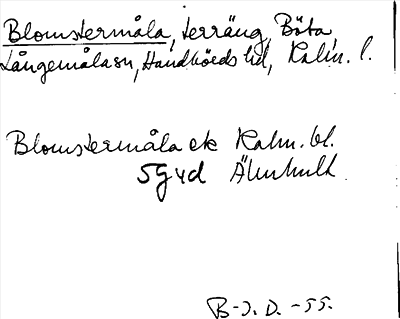 Blomstermåla, terräng, Böta
Långemåla sn, Handbörds hd, Kalm. l.
Blomstermåla ek Kalm. bl.
5 G y d Älmhult
B-J. D. -55.